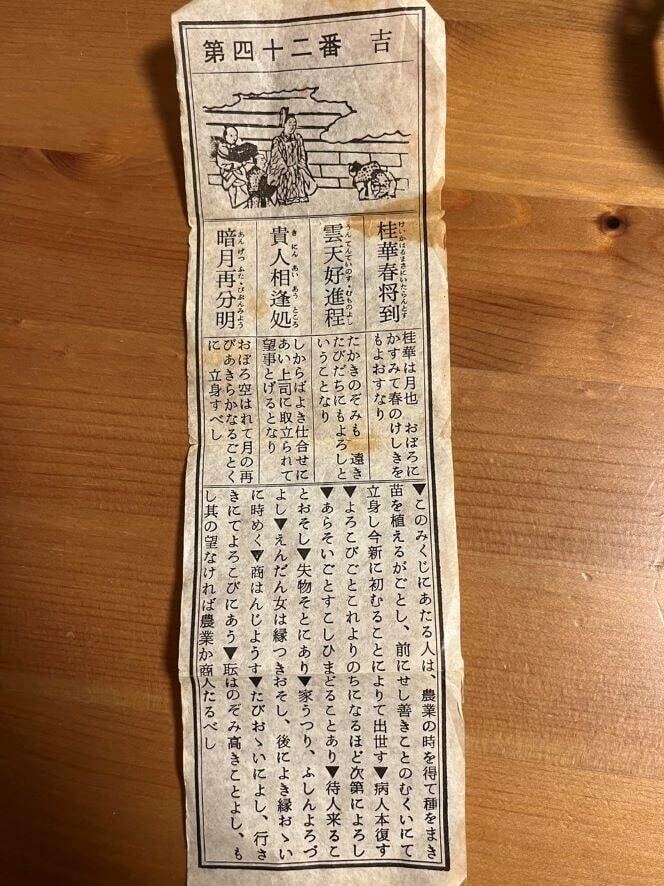 第四十二番 吉
桂華春将到
けいかはるまさにいたらんとす
雲天好進程
うんてんていのすゝむものよし
貴人相逢処
きにんあいあうところ
暗月再分明
あんげつふたゝびぶんみよう
桂華は月也 おぼろに
かすみて春のけしきを
もよおすなり
たかきのぞみも 遠き
たびだちにもよろしと
いうことなり
しからばよき仕合せに
あい上司に取立られて
望事とげるとなり
おぼろ空はれて月の再
びあきらかなるごとく
に 立身すべし
▼このみくじにあたる人は、農業の時を得て種をまき
苗を植えるがごとし、前にせし善きことのむくいにて
立身し今新に初むることによりて出世す▼病人本復す
▼よろこびごとこれよりのちになるほど次第によろし
▼あらそいごとすこしひまどることあり▼待人来るこ
とおそし▼失物そとにあり▼家うつり、ふしんよろづ
よし▼えんだん女は縁つきおそし、後によき縁おゝい
に時めく▼商はんじようす▼たびおゝいによし、行さ
きにてよろこびにあう▼はのぞみ高きことよし、も
し其の望なければ農業か商人たるべし